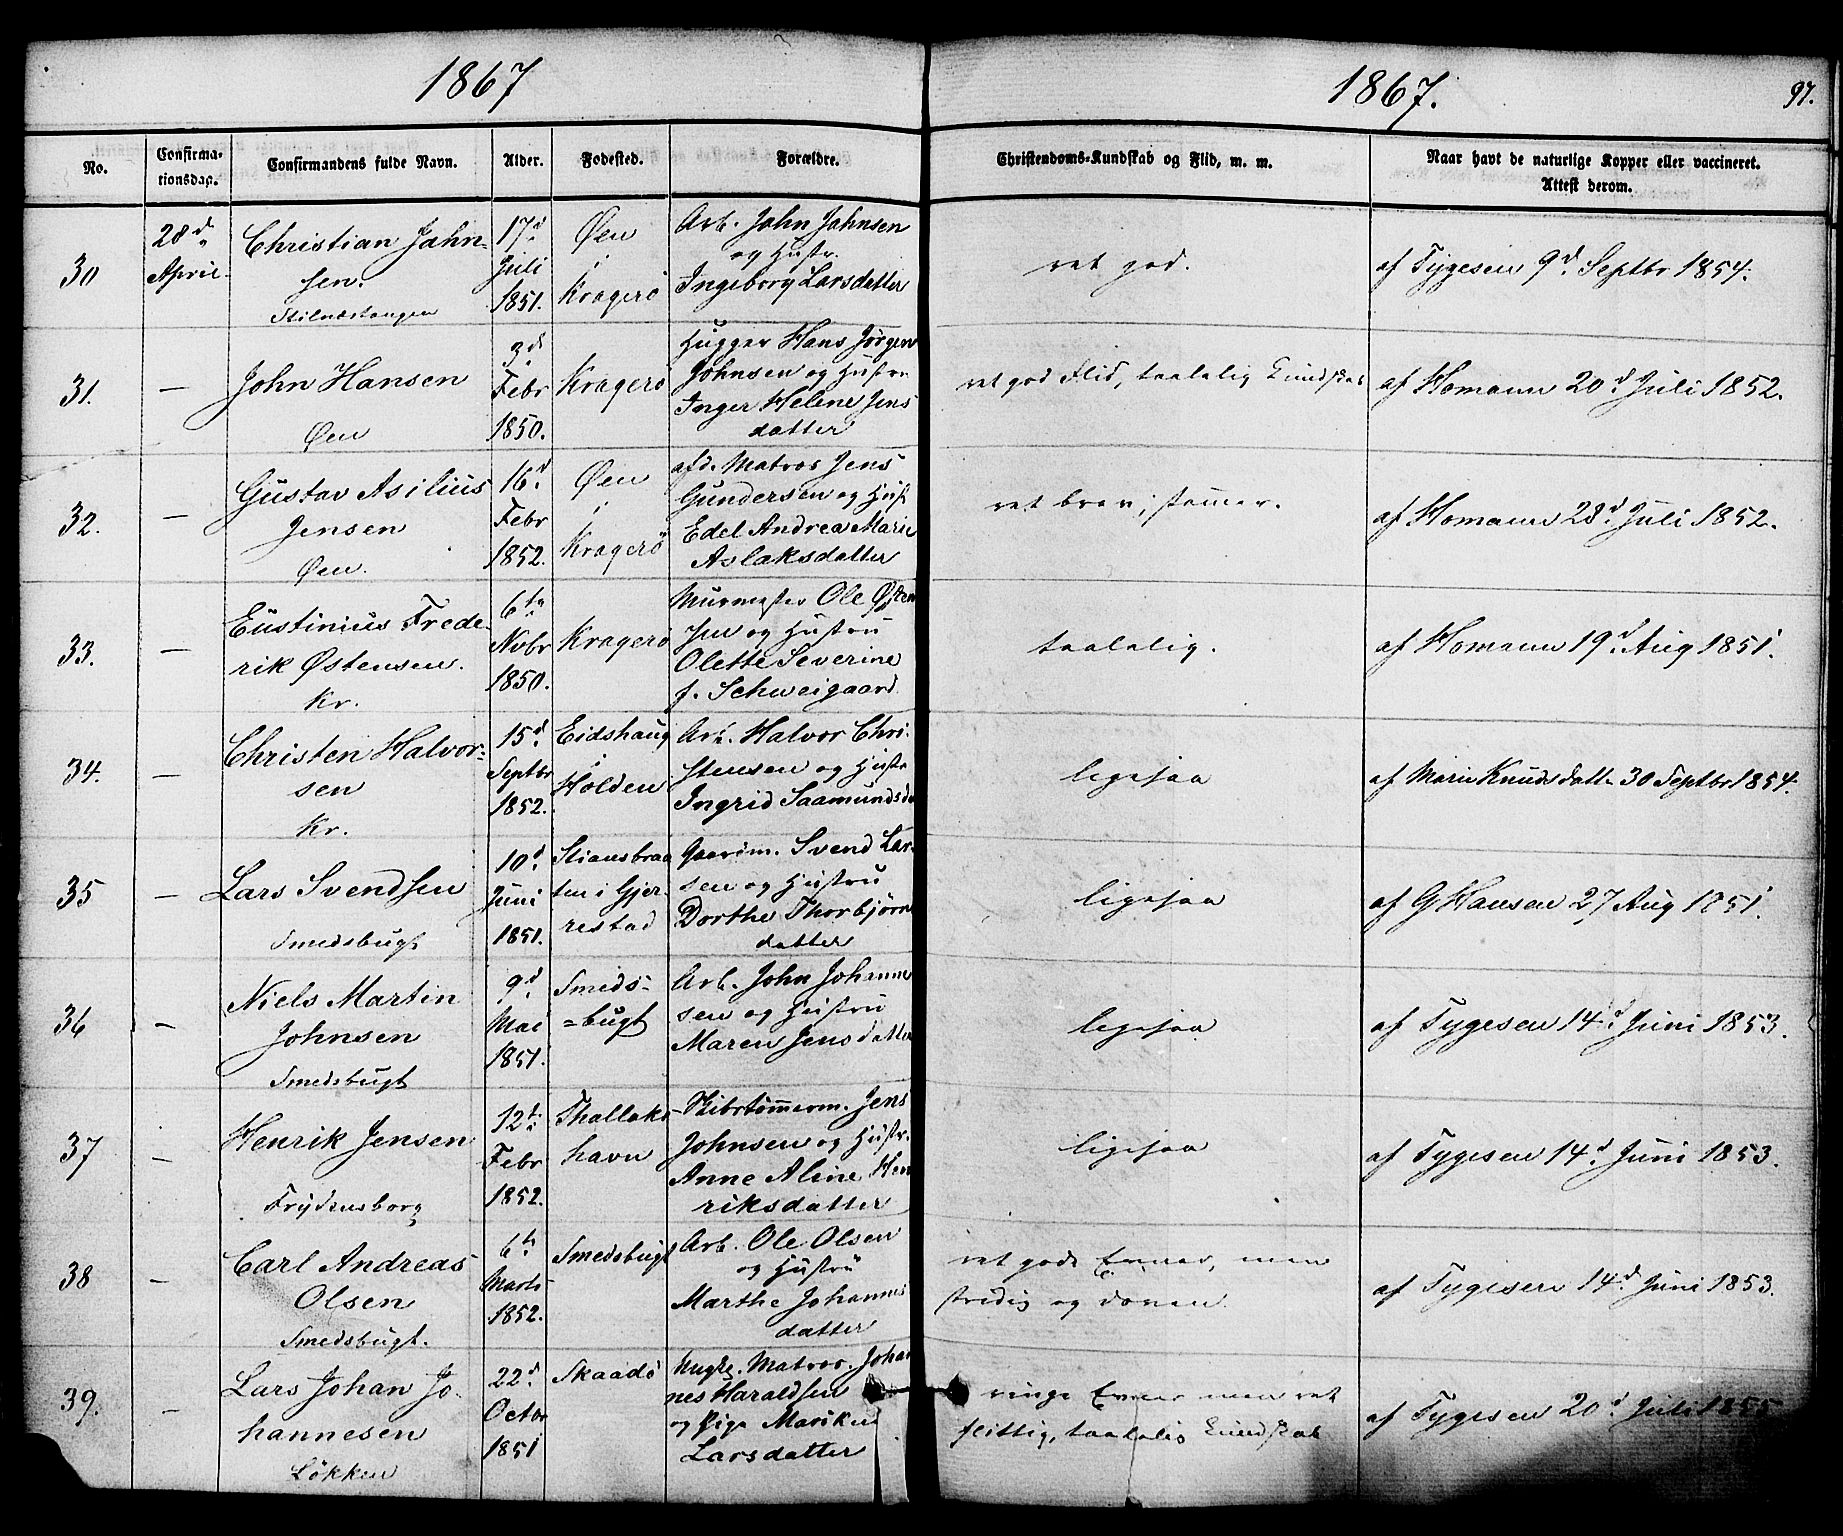 1867
1867.
97.
No.
Confirma-
tionsdag.
Confirmandens fulde Navn.
Alder.
Fodested.
Forældre.
Christendoms-Kundskab og Flid, m. m.
Naar havt de naturlige Kopper eller vaccineret.
Attest derom.
30
28d
April
Christian John-
sen.
Stilnæstangen
17d
Juli
1851.
Øen
i
Kragerö
Arb. John Johnsen
og Hustr.
Ingeborg Larsdatter
ret god.
af Tygesen 9d Septbr 1854.
31.
—
John Hansen
Øen
3d
Febr
1850.
Kragerö
Hugger Hans Jörgen
Johnsen og Hustru
Inger Helene Jens
datter
ret god Flid, taalelig Kundskab
af Homann 20d Juli 1852.
32.
—
Gustav Asilius
Jensen
Øen.
16d
Febr
1852.
Øen
i
Kragerö
afd. Matros Jens
Gundersen og Hust
Edel Andrea Marie
Aslaksdatter
ret brav; stamer.
af Homann 28d Juli 1852.
33.
—
Eustinius Frede-
rik Østensen.
Kr.
6te
Novbr
1850.
Kragerö
Murmester Ole Østen
sen og Hustru
Olette Severine
f. Schweigaard
taalelig.
af Homann 19d Aug 1851.
34.
—
Christen Halvor-
sen
Kr.
15d
Septbr
1852.
Eidshaug
i
Holden
Arb. Halvor Chri-
stensen og Hustr
Ingrid Saamundsda
ligesaa
af Marie Knudsdatt 30 Septbr 1854.
35
—
Lars Svendsen
Smedsbugt
10d
Juni
1851.
Stiansbraa
ten i Gjer-
restad
Gaardm. Svend Lar-
sen og Hustru
Dorthe Thorbjörn
datter
ligesaa
af G Hansen 27 Aug 1851.
36
—
Niels Martin
Johnsen
Smedsbugt
9d
Mai
1851.
Smeds-
=bugt
Arb. John Johanne
sen og Hustru
Maren Jensdatter
ligesaa
af Tygesen 14d Juni 1853.
37
—
Henrik Jensen
Frydensborg
12te
Febr
1852.
Thallaks-
havn
Skibstømmerm. Jens
Johnsen og Hustr.
Anne Aline Hen
riksdatter
ligesaa
af Tygesen 14d Juni 1853.
38
—
Carl Andreas
Olsen
Smedsbugt.
6te
Marts
1852.
Smedsbugt
Arb. Ole Olsen
og Hustru
Marthe Johannes
datter
ret gode Evner, men
stridig og doven.
af Tygesen 14d Juni 1853.
39.
—
Lars Johan Jo-
hannesen
Lökken
22d
Octbr
1851
Skaadö
Ungk. Matros. Johan
nes Haraldsen
og Pige Mariken
Larsdatter
ringe Evner men ret
flittig, taalelig Kundskab
af Tygesen 20d Juli 1855